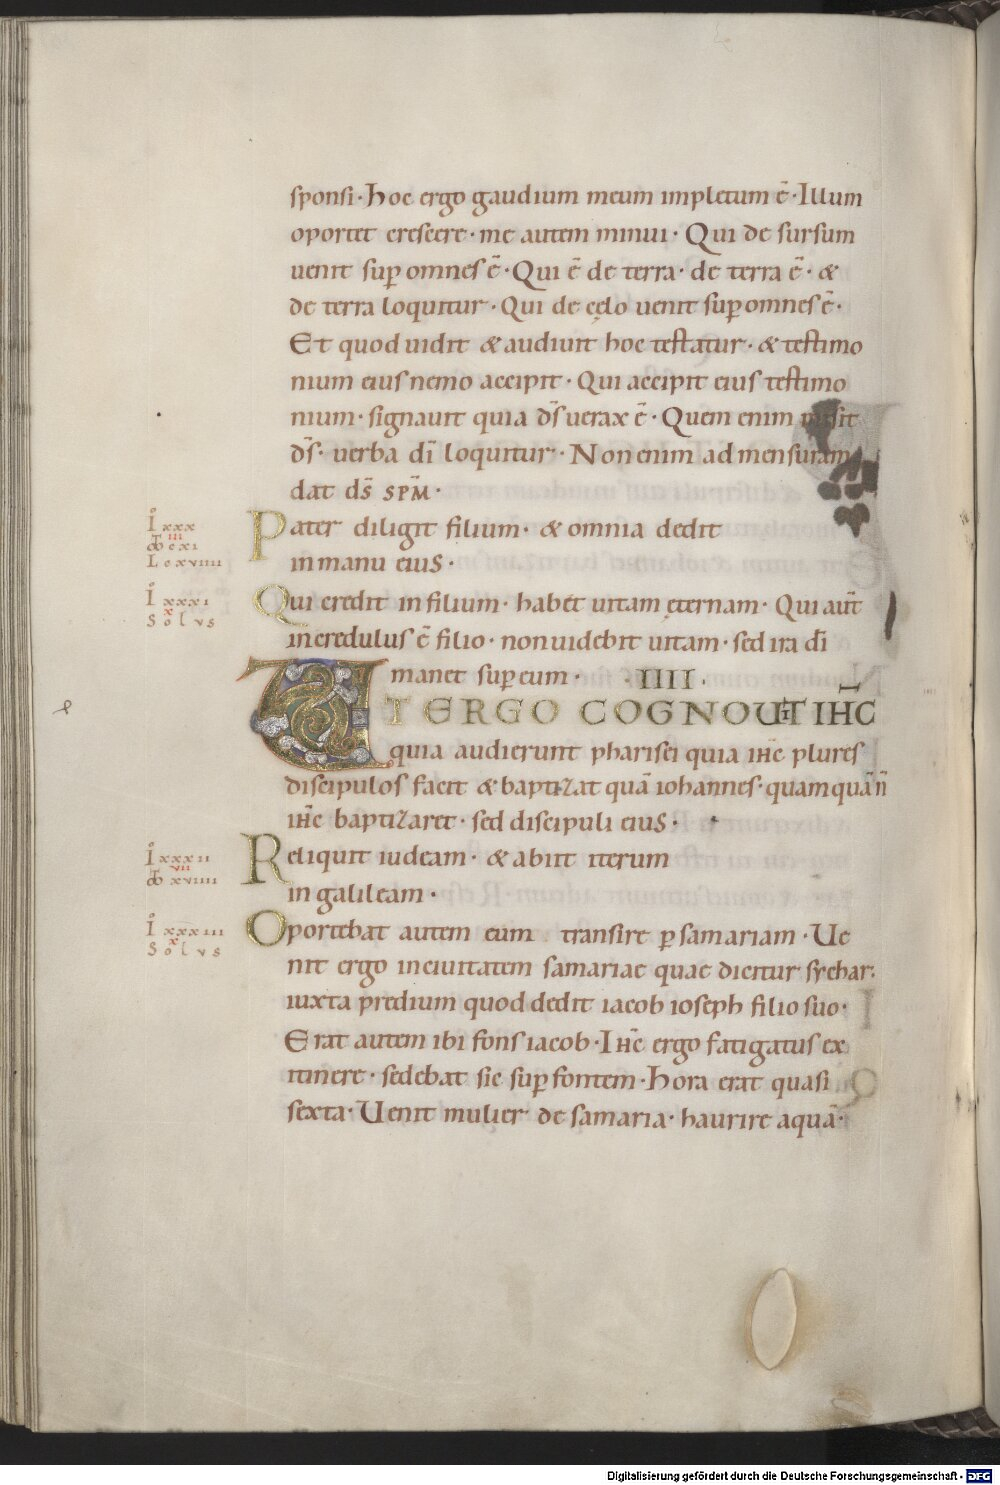 sponsi· hoc ergo gaudium meum impletum ē· Illum
oportet crescere· me autem minui· Qui de sursum
uenit sup omnes ē· Qui ē de terra· de terra ē· &
de terra loquitur· Qui de cęlo uenit sup omnes ē·
Et quod uidit & audiuit hoc testatur· & testimo
nium eius nemo accipit· Qui accipit eius testimo
nium· signauit quia d̄s uerax ē· Quem enim misit
d̄s· uerba dī loquitur· Non enim ad mensuram
dat d̄s SPM̄·
Pater diligit filium· & omnia dedit
in manu eius·
Qui credit in filium· habet uitam ęternam· Qui aut̄
incredulus ē filio· non uidebit uitam· sed ira dī
manet sup eum· ·IIII·
UT ERGO COGNOUIT IHC̄
quia audierunt pharisei quia ihc̄ plures
discipulos facit & baptizat quā iohannes· quamquā n̄
ihc̄ baptizaret· sed discipuli eius·
Reliquit iudeam· & abiit iterum
in galileam·
Oportebat autem eum transire p samariam· Ue
nit ergo in ciuitatem samariae quae dicitur sychar·
iuxta predium quod dedit iacob ioseph filio suo·
Erat autem ibi fons iacob· Ihc̄ ergo fatigatus ex
itinere· sedebat sic sup fontem· Hora erat quasi
sexta· Uenit mulier de samaria· haurire aquā·
I xxx
iii
cxi
L cxviiii
I xxxi
x
Solus
I xxxii
vii
xviiii
I xxxiii
x
Solus
Digitalisierung gefördert durch die Deutsche Forschungsgemeinschaft - DFG